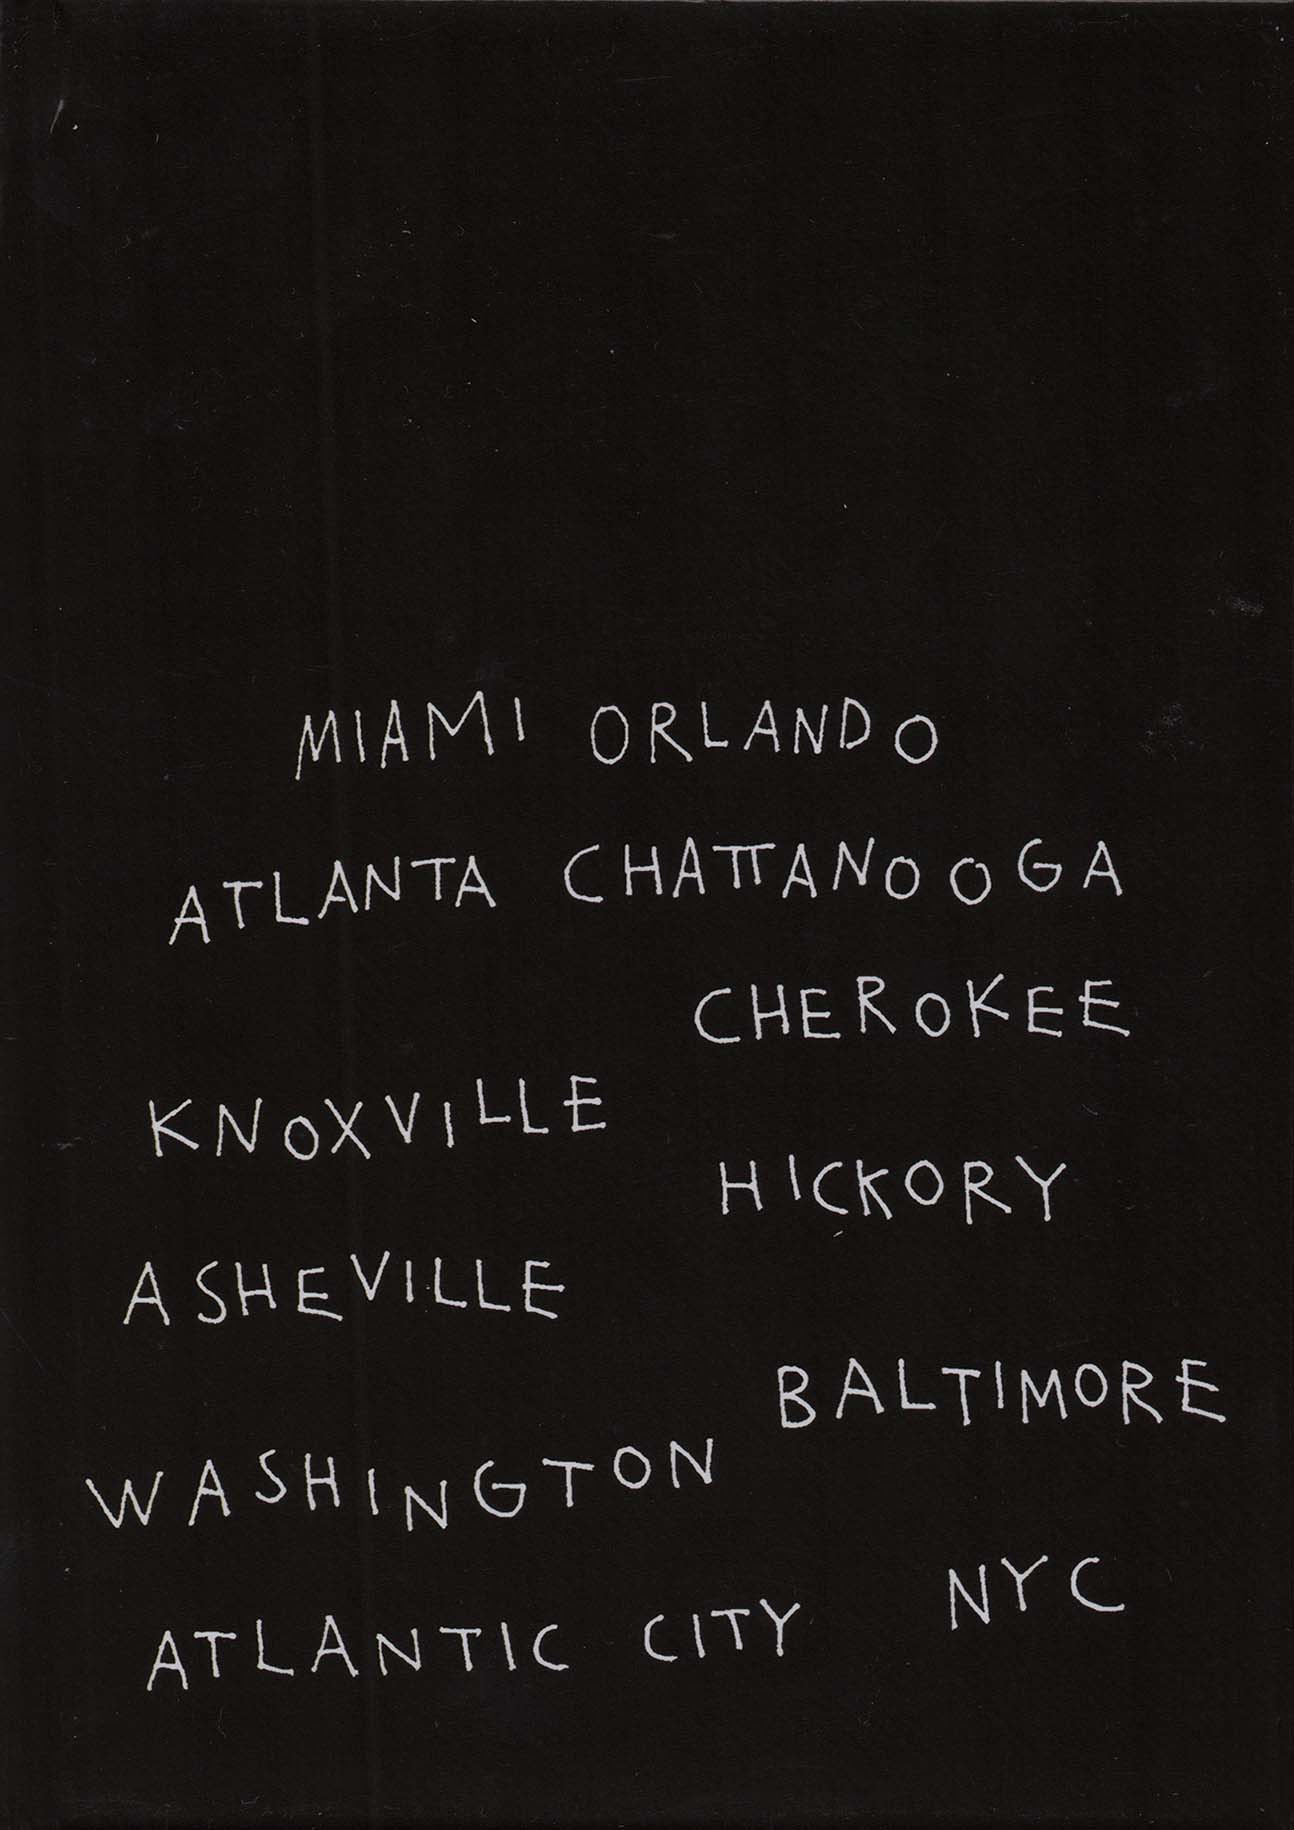 MIAMI ORLANDO
ATLANTA CHATTANOOGA
CHEROKEE
KNOXVILLE
HICKORY
ASHEVILLE
BALTIMORE
WASHINGTON
NYC
ATLANTIC CITY